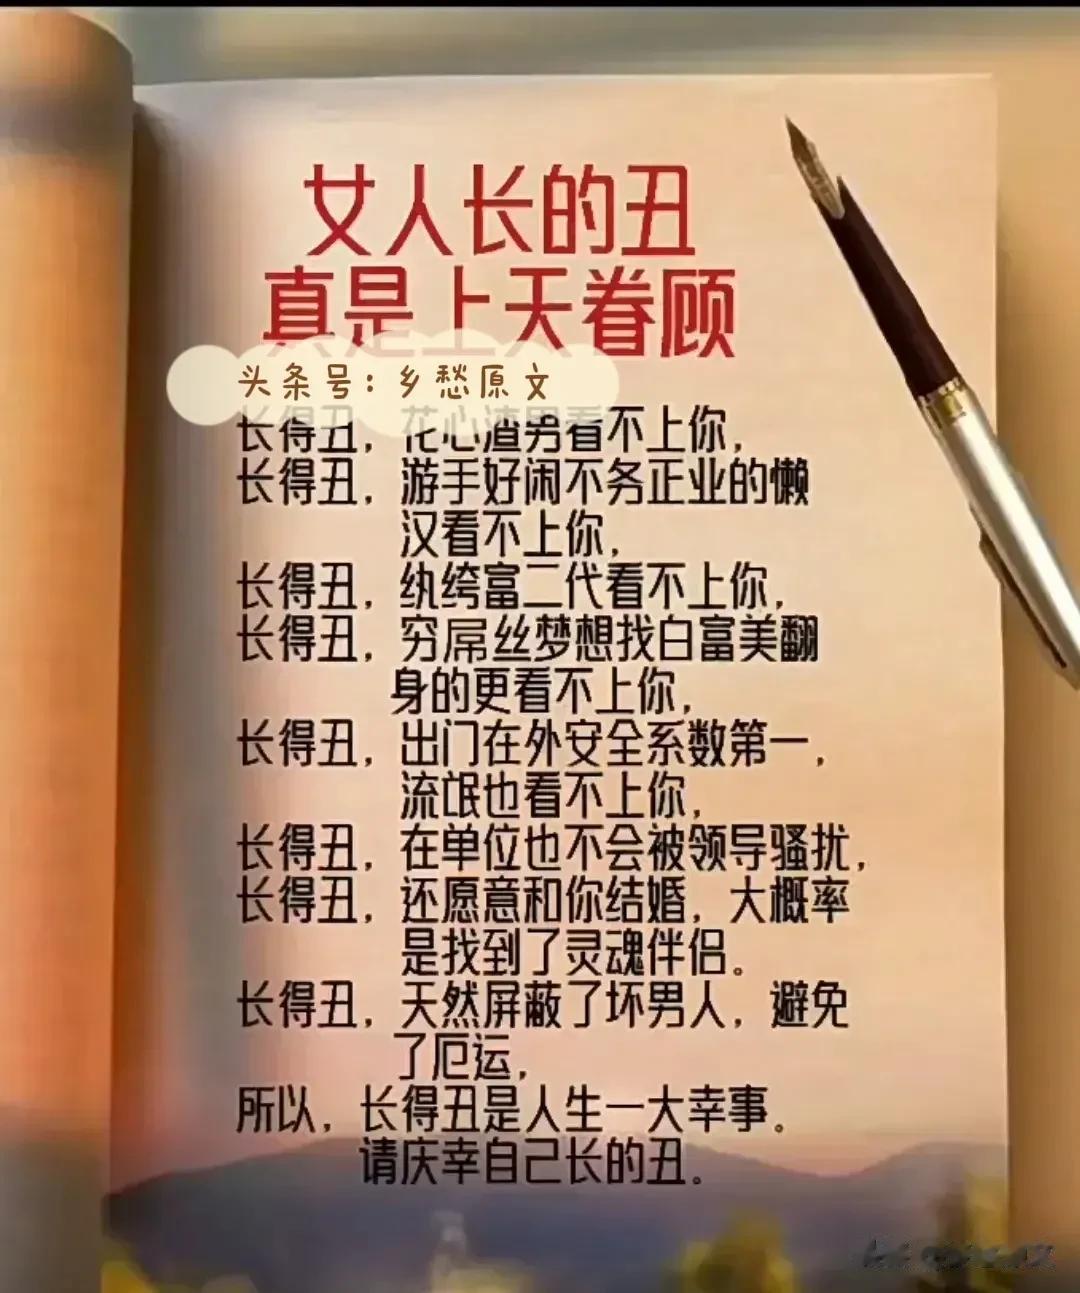 女人长的丑
真是上天眷顾
头条号：乡愁原文
长得丑，花心渣男看不上你，
长得丑，游手好闲不务正业的懒
汉看不上你，
长得丑，纨绔富二代看不上你，
长得丑，穷屌丝梦想找白富美翻
身的更看不上你，
长得丑，出门在外安全系数第一，
流氓也看不上你，
长得丑，在单位也不会被领导骚扰，
长得丑，还愿意和你结婚，大概率
是找到了灵魂伴侣。
长得丑，天然屏蔽了坏男人，避免
了厄运，
所以，长得丑是人生一大幸事。
请庆幸自己长的丑。